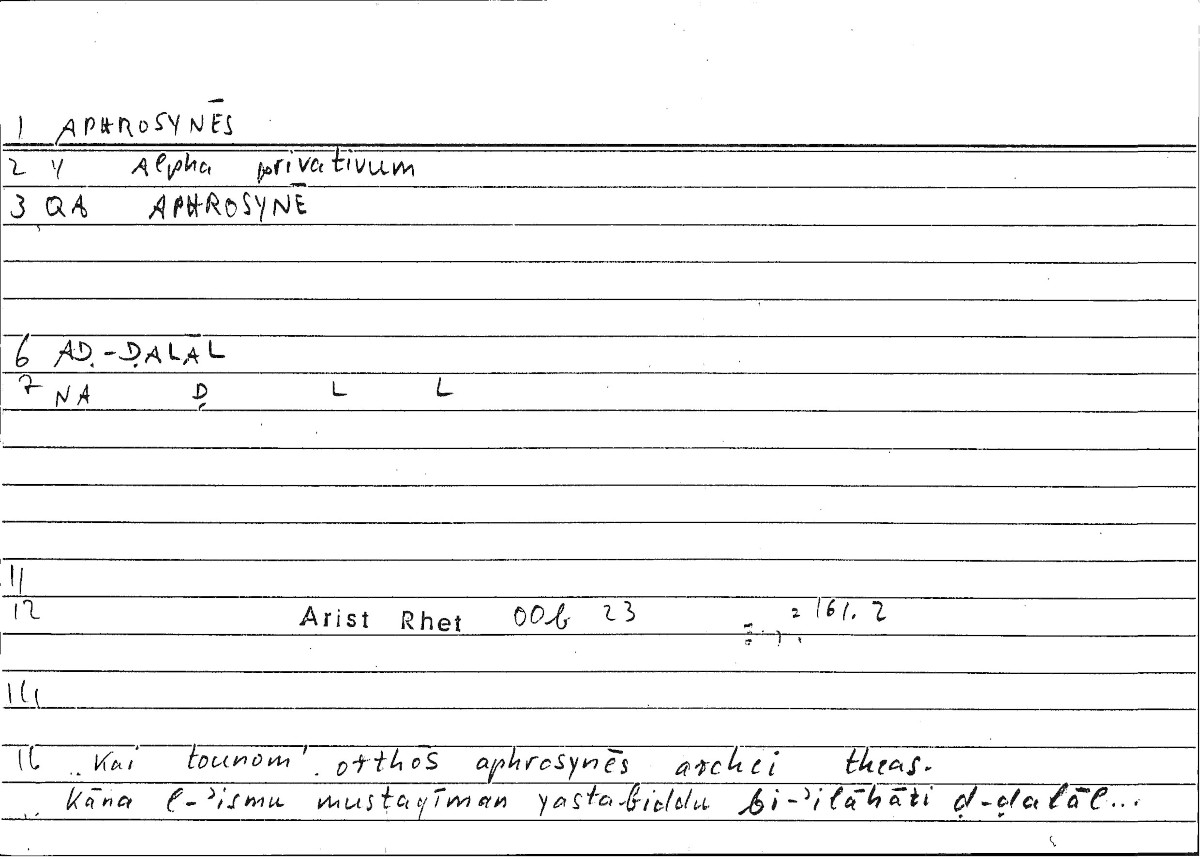 1 APHROSYNĒS
2 Y Alpha privativum
3 QA APHROSYNĒ
6 AḌ-ḌALĀL
7 NA Ḍ L L
11
12 Arist Rhet 00b 23 = 161.2
14
16 „Kai tounom' orthōs aphrosynēs archei theas.
„Kāna l-ʾismu mustaqīman yastabiddu bi-ʾilāhāti ḍ-ḍalāl...